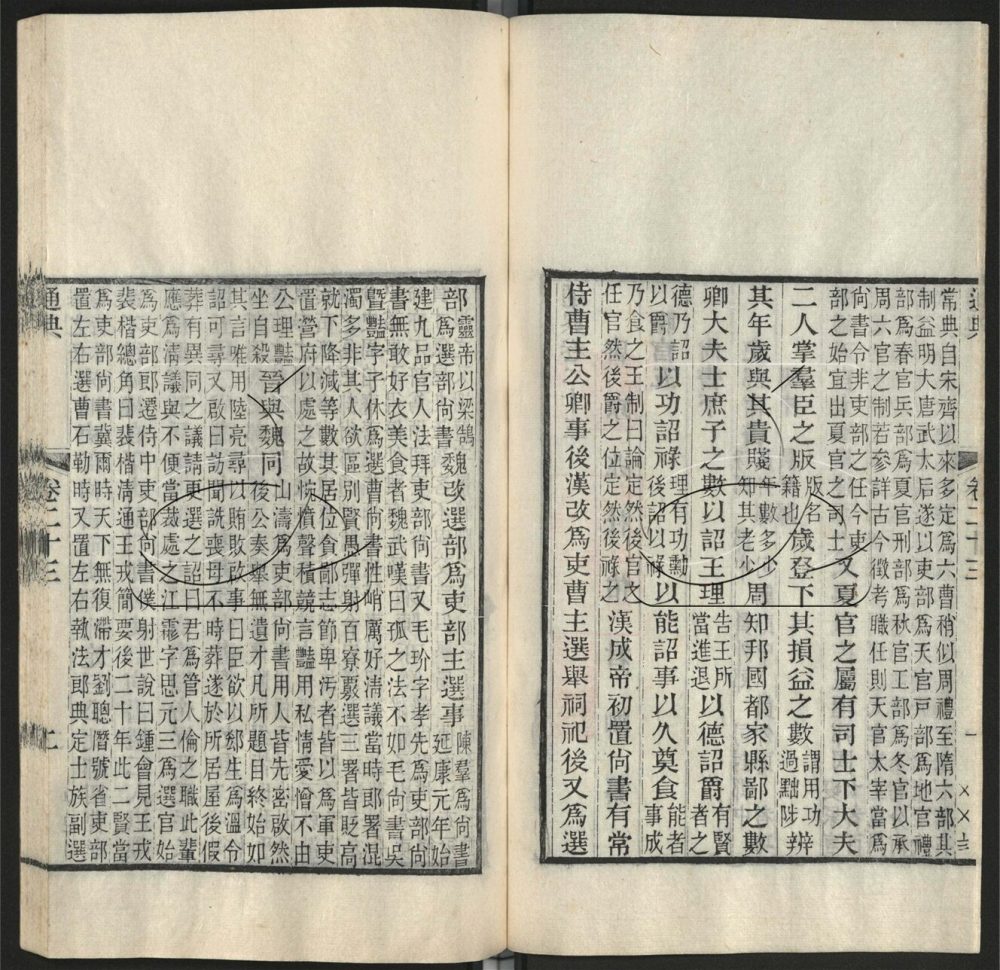 常典自宋齊以來多定爲六曹稍似周禮至隋六部其
制益明大唐武太后遂以吏部爲天官戶部爲地官禮
部爲春官兵部爲夏官刑部爲秋官工部爲冬官以承
周六官之制若參詳古今徵考職任則天官太宰當爲
尚書令非吏部之任今吏部之始宜出夏官之司士又夏官之屬有司士下大夫
二人掌羣臣之版版名籍也歲登下其損益之數謂用功過黜陟辨
其年歲與其貴賤年數多少知其老少周知邦國都家縣鄙之數
卿大夫士庶子之數以詔王理告王所當進退以德詔爵有賢者之
德乃詔以爵以功詔祿理有功勳後詔以祿以能詔事以久奠食能者事成
乃食之王制曰論定然後官之任官然後爵之位定然後祿之漢成帝初置尚書有常
侍曹主公卿事後漢改爲吏曹主選舉祠祀後又爲選
部靈帝以梁鵠爲選部尚書魏改選部爲吏部主選事陳羣爲尚書延康元年始
建九品官人法拜吏部尚書又毛玠字孝先爲吏部尚
書無敢好衣美食者魏武嘆曰孤之法不如毛尚書吳
曁豔字子休爲選曹尚書性峭厲好清議當時郎署混
濁多非其人欲區別賢愚彈射百寮覈選三署皆貶高
就下降減等數其居位貪鄙志節卑汚者皆以爲軍吏
置營府以處之故惋憤聲積競言豔用私情愛憎不由
公理豔坐自殺晉與魏同山濤爲吏部尚書用人皆先密啟然後公奏舉無遺才凡所題目終始如
其言唯用陸亮尋以賄敗啟事曰臣欲以郄生爲溫令
詔可尋又啟曰訪聞詵喪母不時葬遂於所居屋後假
葬有異同之議請更選之詔曰君爲管人倫之職此輩
應爲清議與不便當裁處之江霦字思元三爲選官始
爲吏部郎遷侍中吏部尚書僕射世說曰鍾會見王戎
裴楷總角曰裴楷清通王戎簡要後二十年此二賢當
爲吏部尚書冀爾時天下無復滯才劉聰僭號省吏部
置左右選曹石勒時又置左右執法郎典定士族副選
通典 卷二十三